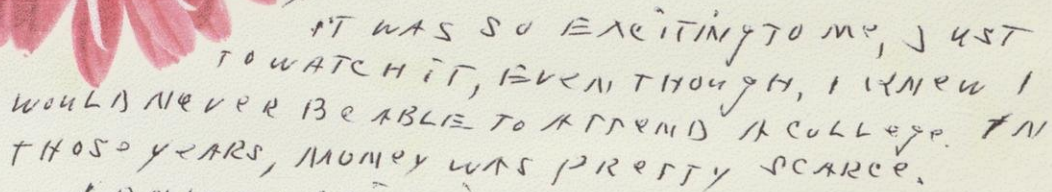 IT WAS SO EXCITING TO ME, JUST
TO WATCH IT, EVEN THOUGH, I KNEW I
WOULD NEVER BE ABLE TO ATTEND A COLLEGE. IN
THOSE YEARS, MONEY WAS PRETTY SCARCE.